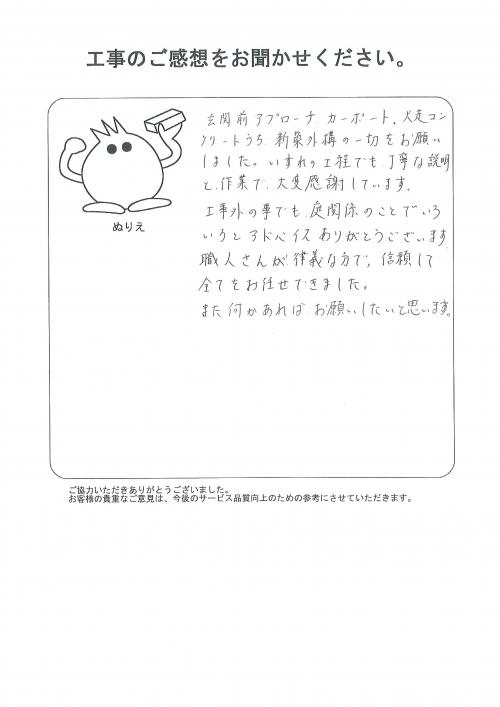 工事のご感想をお聞かせください。
玄関前アプローチ、カーポート、犬走コン
クリートうち、新築外構の一切をお願い
しました。いずれの工程でも、丁寧な説明
と、作業で、大変感謝しています。
工事外の事でも、庭関係のことでいろ
いろとアドバイスありがとうございます。
職人さんが律義な方で、信頼して
全てをお任せできました。
また何かあれば お願いしたいと思います。
ぬりえ
ご協力いただきありがとうございました。
お客様の貴重なご意見は、今後のサービス品質向上のための参考にさせていただきます。